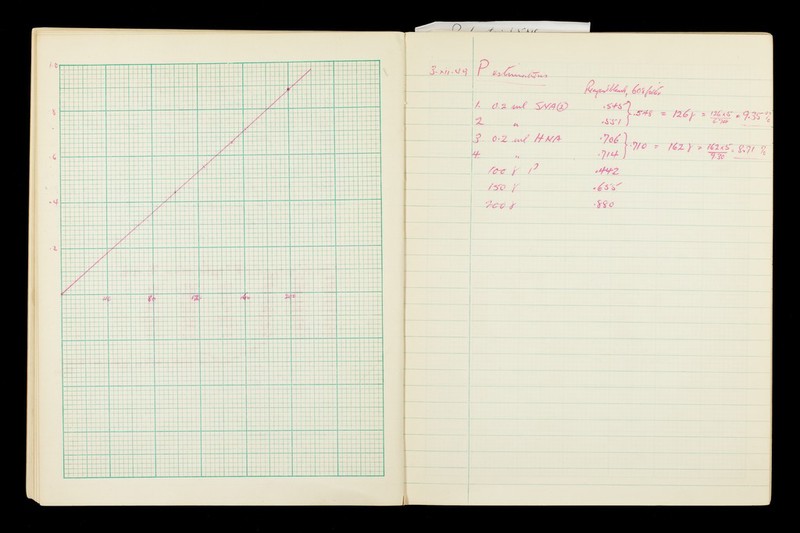 1.0
.8
.6
.4
.2
40 80 120 160 200
3.XII.44 P estimations
Reagent blank, 60s/pds
1. 0.2 ml SNA(2) .545
2. " .551 } .548 = 126γ = 126x5 = 9.35 %
3. 0.2 ml HNA .706
4. " .714 } .710 = 162γ = 162x5 = 8.71 %
9.30
100 γ P .442
150 γ .655
200 γ .880